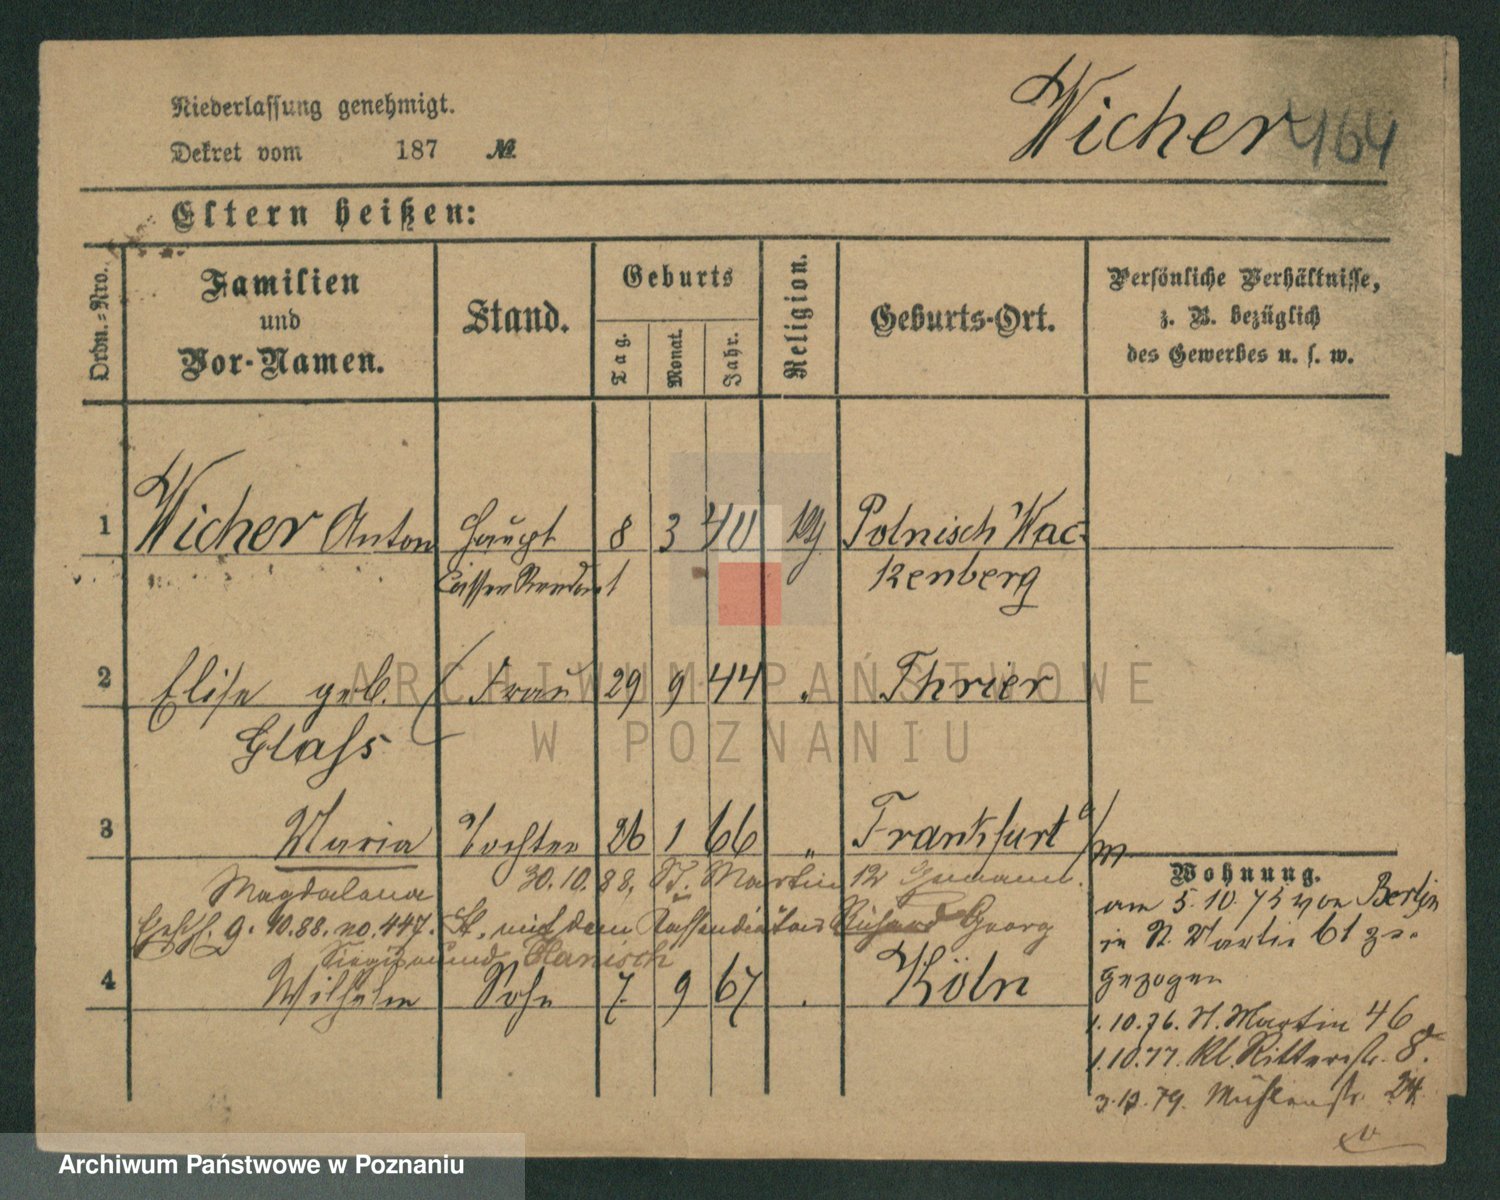 Niederlassung genehmigt.
Wicher 464
Dekret vom 187 №
Eltern heißen:
Ordn.-Nro.
Familien und Vor-Namen.
Stand.
Geburts
Tag.
Monat.
Jahr.
Religion.
Geburts-Ort.
Persönliche Verhältnisse,
z. B. bezüglich
des Gewerbes u. s. w.
1 Wicher Anton Haupt 8 3 40 Polnisch Wac-
Cassen Rendant kenberg
2 Elise geb. Frau 29 9 44 " Thrier
Glaſs
3 Maria Tochter 26 1 66 " Frankfurt a/m
Magdalena 30.10.88. St. Martin 12
9.10.88. no. 447. mit dem Georg
Hanisch
4 Wilhelm Sohn 7. 9 67 Köln
Wohnung.
am 5.10.75 von Berlin
in St. Martin 61 zu-
gezogen
1.10.76. St. Martin 46
1.10.77. Kl. Ritterstr. 8.
Mühlenstr. 24
ARCHIWUM PAŃSTWOWE
W POZNANIU
Archiwum Państwowe w Poznaniu